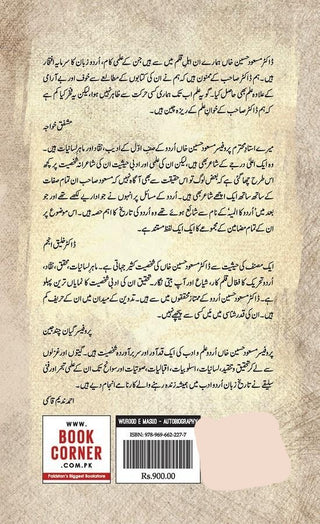 ڈاکٹر مسعود حسین خاں ہمارے ان اہلِ قلم میں سے ہیں جن کے علمی کام، اُردو زبان کا سرمایہِ افتخار
ہیں۔ ہم ڈاکٹر صاحب کے ممنون ہیں کہ ہم نے ان کی کتابوں کے مطالعے سے خوف اور بے آرامی
کے علاوہ علم بھی حاصل کیا۔ گو یہ علم اب تک ہماری کسی حرکت سے ظاہر نہیں ہوا، لیکن یہ فخر کیا کم ہے
کہ ہم ڈاکٹر صاحب کے خوانِ علم کے ریزہ چیں ہیں۔
مشفق خواجہ
میرے استادِ محترم پروفیسر مسعود حسین خاں اُردو کے صفِ اوّل کے ادیب، نقاد اور ماہرِ لسانیات ہیں۔
وہ ایک اعلیٰ درجے کے شاعر بھی ہیں، لیکن ان کی علمی اور ادبی حیثیت ان کی شاعرانہ شخصیت پر کچھ
اس طرح چھا گئی ہے کہ بعض لوگ تو اس حقیقت سے بھی آگاہ نہیں کہ مسعود صاحب ان تمام صفات
کے ساتھ ساتھ ایک اچھے شاعر بھی ہیں۔ اُردو کے مسائل پر انہوں نے جو اداریے لکھے تھے اور جو
بعد میں 'اُردو کا المیہ' کے نام سے شائع ہوئے تھے، وہ اُردو کی تاریخ کا اہم حصہ ہیں۔ اس موضوع پر
ان کے تمام مضامین کے مجموعے کا ایک ایک لفظ مستند ہے۔
ڈاکٹر خلیق انجم
ایک مصنف کی حیثیت سے ڈاکٹر مسعود حسین خاں کی شخصیت کثیر جہاتی ہے۔ ماہرِ لسانیات، محقق، نقاد،
اُردو تحریک کا فعال کارکن، شاعر اور آپ بیتی نگار۔ تحقیق ان کی ادبی شخصیت کا نمایاں ترین پہلو
ہے۔ ڈاکٹر مسعود حسین خاں اُردو کے ممتاز محققوں میں سے ہیں۔ تدوین کے میدان میں ان کے حریف کم
ہیں۔ ان کی قدر شناسی میں میں کسی سے پیچھے نہیں۔
پروفیسر گیان چند جین
پروفیسر مسعود حسین خاں اُردو علم و ادب کی ایک قد آور اور سربرآوردہ شخصیت ہیں۔ گیتوں اور غزلوں
سے تحقیق و تنقید، لسانیات و اسلوبیات، اقبالیات، صوتیات اور سوانح تک ان کے علمی تبحر اور فنی
سلیقے نے تاریخِ زبانِ اُردو ادب میں ہمیشہ زندہ رہنے والے کارنامے انجام دیے ہیں۔
احمد ندیم قاسمی
WWW.
BOOK
CORNER
.COM.PK
Pakistan's Biggest Bookstore
WUROOD E MASUD - AUTOBIOGRAPHY
ISBN: 978-969-662-227-7
Rs.900.00